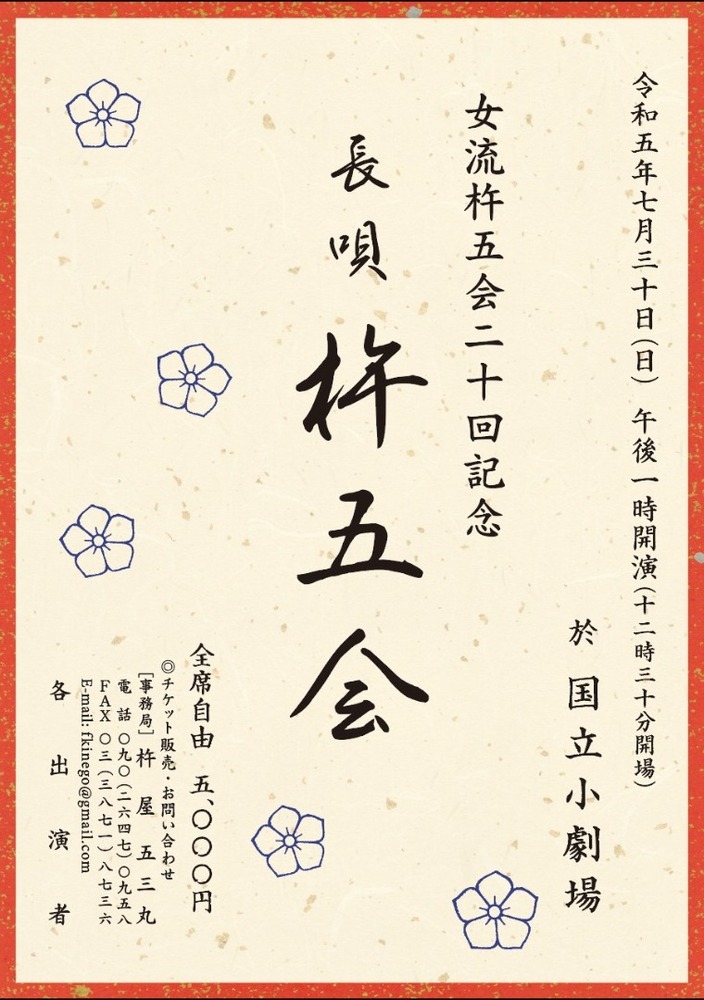 令和五年七月三十日(日) 午後一時開演(十二時三十分開場)
於 国立小劇場
女流杵五会二十回記念
長唄 杵五会
全席自由 五、〇〇〇円
◎チケット販売・お問い合わせ
[事務局] 杵屋五三丸
電話 〇九〇(二六四七)〇九五八
FAX 〇三(三八七一)八七三六
E-mail: fkinego@gmail.com
各出演者